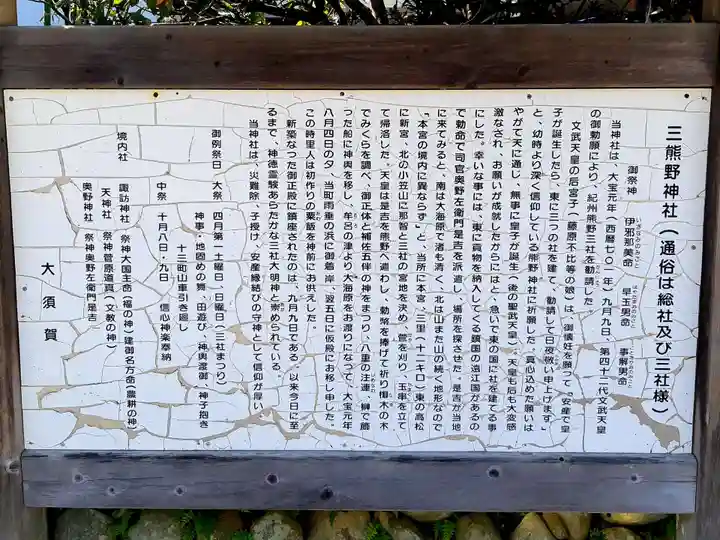 三熊野神社（通俗は総社及び三社様）
御祭神　伊邪那美命　早玉男命　事解男命
当神社は、大宝元年（西暦七〇一年）九月九日、第四十二代文武天皇
の御勅願により、紀州熊野三社を勧請した。
文武天皇の后宮子（藤原不比等の娘）は、御懐妊を願って〝安産で皇
子が誕生したら、東に三つの社を建て、勧請して日夜敬い申上げます〟
と、幼時より深く信仰している熊野神社に祈願した。真心込めた願いは
やがて天に通じ、無事に皇子が誕生（後の聖武天皇）。天皇も后も大変感
激なされ、お願いが成就したからにはと、急いで東の国に社を建てる事
にした。幸いな事には、東に貢物を納入してくる鎮国の遠江国があるの
で勅命で司官奥野左衛門是吉を派遣し、場所を探させた。是吉が当地
に来てみると、南は大海原で渚も清く、北は山また山の続く地形なので
「本宮の境内に異ならず」と、当所に本宮、三里（十二キロ）東の高松
に新宮、北の小笠山に那智と三社の宮地を決め、菅を刈り、玉串を立て
て帰洛した。天皇は是吉を熊野へ遣わし、勅幣を捧げて祈り槶木の木
でみくらを調べ、御正体と補佐五伴の神をまつり、八重の注連、榊で飾
った船に神輿を移し、牟呂の津より大海原をお渡りになって、大宝元年
八月四日の夕、当町雨垂の浜に御着岸、翌五日に仮殿にお移し申した。
この時里人は初作りの粟飯を神前にお供えした。
新築なった御正殿に鎮座されたのは、九月九日である。以来今日に至
るまで、神徳霊験あらたかな三社大明神と崇められている。
当神社は、災難除、子授け、安産縁結びの守神として信仰が厚い
御例祭日　大祭　四月第一土曜日、日曜日（三社まつり）
神事・地固めの舞、田遊び、神輿渡御、神子抱き
十三町山車引き廻
中祭　十月八日・九日　信心神楽奉納
境内社　諏訪神社　祭神大国主命（福の神）建御名方命（農耕の神）
天神社　祭神菅原道真（文教の神）
奥野神社　祭神奥野左衛門是吉
大須賀